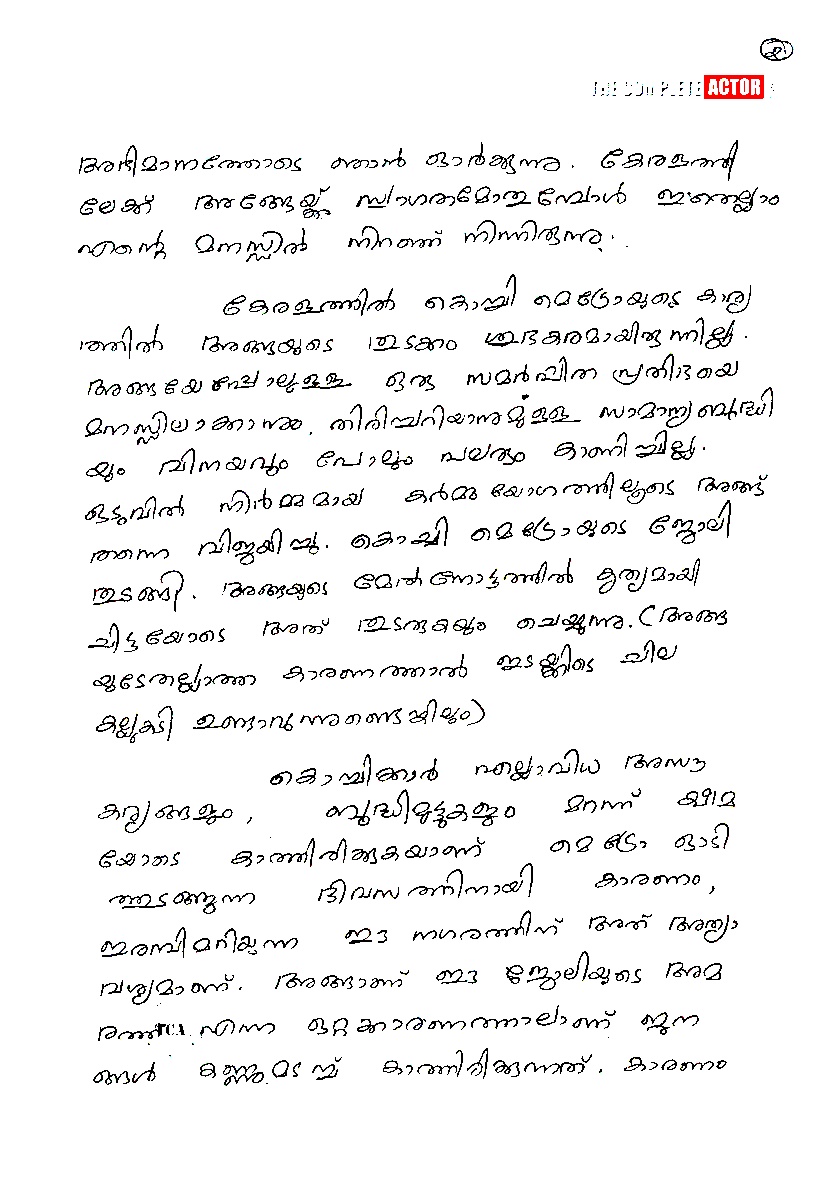 2
THE COMPLETE ACTOR
അഭിമാനത്തോടെ ഞാൻ ഓർക്കുന്നു. കേരളത്തി
ലേക്ക് അങ്ങേയ്ക്ക് സ്വാഗതമോതുമ്പോൾ ഇതെല്ലാം
എന്റെ മനസ്സിൽ നിറഞ്ഞ് നിന്നിരുന്നു.
കേരളത്തിൽ കൊച്ചി മെട്രോയുടെ കാര്യ
ത്തിൽ അങ്ങയുടെ തുടക്കം ശുഭകരമായിരുന്നില്ല.
അങ്ങയേപ്പോലുള്ള ഒരു സമർപ്പിത പ്രതിഭയെ
മനസ്സിലാക്കാനും, തിരിച്ചറിയാനുമുള്ള സാമാന്യബുദ്ധി
യും വിനയവും പോലും പലരും കാണിച്ചില്ല.
ഒടുവിൽ നിർമ്മമായ കർമ്മയോഗത്തിലൂടെ അങ്ങ്
തന്നെ വിജയിച്ചു. കൊച്ചി മെട്രോയുടെ ജോലി
തുടങ്ങി. അങ്ങയുടെ മേൽനോട്ടത്തിൽ കൃത്യമായി
ചിട്ടയോടെ അത് തുടരുകയും ചെയ്യുന്നു. (അങ്ങ
യുടേതല്ലാത്ത കാരണത്താൽ ഇടയ്ക്കിടെ ചില
കല്ലുകടി ഉണ്ടാവുന്നുണ്ടെങ്കിലും)
കൊച്ചിക്കാർ എല്ലാവിധ അസൗ
കര്യങ്ങളും, ബുദ്ധിമുട്ടുകളും മറന്ന് ക്ഷമ
യോടെ കാത്തിരിക്കുകയാണ് മെട്രോ ഓടി
ത്തുടങ്ങുന്ന ദിവസത്തിനായി കാരണം,
ഇരമ്പിമറിയുന്ന ഈ നഗരത്തിന് അത് അത്യാ
വശ്യമാണ്. അങ്ങാണ് ഈ ജോലിയുടെ അമ
രത്ത് എന്ന ഒറ്റക്കാരണത്താലാണ് ജന
ങ്ങൾ കണ്ണുമടച്ച് കാത്തിരിക്കുന്നത്. കാരണം